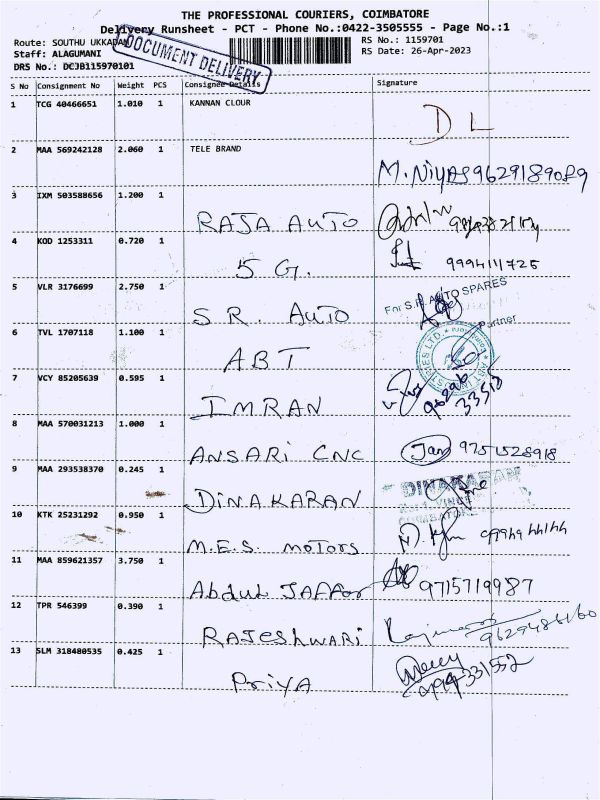 THE PROFESSIONAL COURIERS, COIMBATORE
Delivery Runsheet - PCT - Phone No.:0422-3505555 - Page No.:1
Route: SOUTHU UKKADAM
RS No.: 1159701
Staff: ALAGUMANI
RS Date: 26-Apr-2023
DRS No.: DCJB115970101
DOCUMENT DELIVERY
S No Consignment No Weight PCS Consignee Details Signature
1 TCG 40466651 1.010 1 KANNAN CLOUR
D L
2 MAA 569242128 2.060 1 TELE BRAND
M. Niyas 9629189089
3 IXM 503588656 1.200 1
RAJA AUTO
4 KOD 1253311 0.720 1
5 G. 9994111725
5 VLR 3176699 2.750 1
S R. AUTO For S.R. AUTO SPARES
Partner
6 TVL 1707118 1.100 1
ABT
7 VCY 85205639 0.595 1
IMRAN
8 MAA 570031213 1.000 1
ANSARI CNC 9751528918
9 MAA 293538370 0.245 1
DINAKARAN DINAKARAN
COIMBATORE
10 KTK 25231292 0.950 1
M.E.S. MOTORS
11 MAA 859621357 3.750 1
Abdul JAFFar 9715719987
12 TPR 546399 0.390 1
RAJESHWARI
13 SLM 318480535 0.425 1
PRIYA